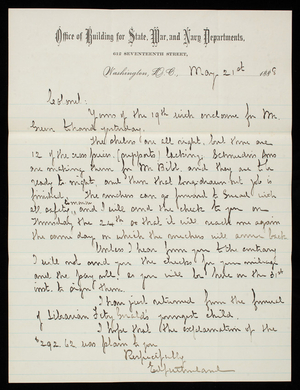 Office of Building for State, War, and Navy Departments,
612 SEVENTEENTH STREET,
Washington, D.C., May 21st 1888
Colonel:
Yours of the 19th with enclosure for Mr.
Green to hand yesterday.
The shelves are all right, but there are
12 of the cross pieces (supports) lacking. Schneiders Sons
are making them for Mr. Bibb, and they are to be
ready to night, and then that long drawn out job is
finished. The vouchers can go forward to
all safety, and I will send the check to you on
Thursday the 24th so that it will reach me again
the same day on which the vouchers will come back
Unless I hear from you to the contrary
I will not send you the checks for your mileage
and the pay roll, as you will be here on the 31st
inst. to sign them.
I have just returned from the funeral
of Librarian youngest child
I hope that the explanation of the
$292.62 was plain to you
Respectfully